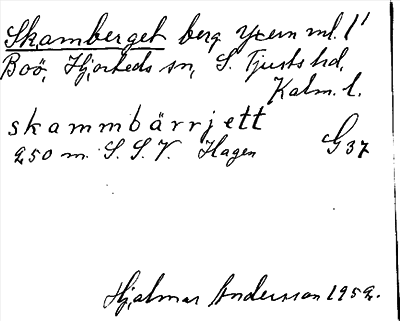 Skamberget berg
Boö, Hjorteds sn, S. Tjusts hd,
Kalm. l.
skammbärrjett
250 m. S. S. V. Hagen G 37
Hjalmar Andersson 1952.